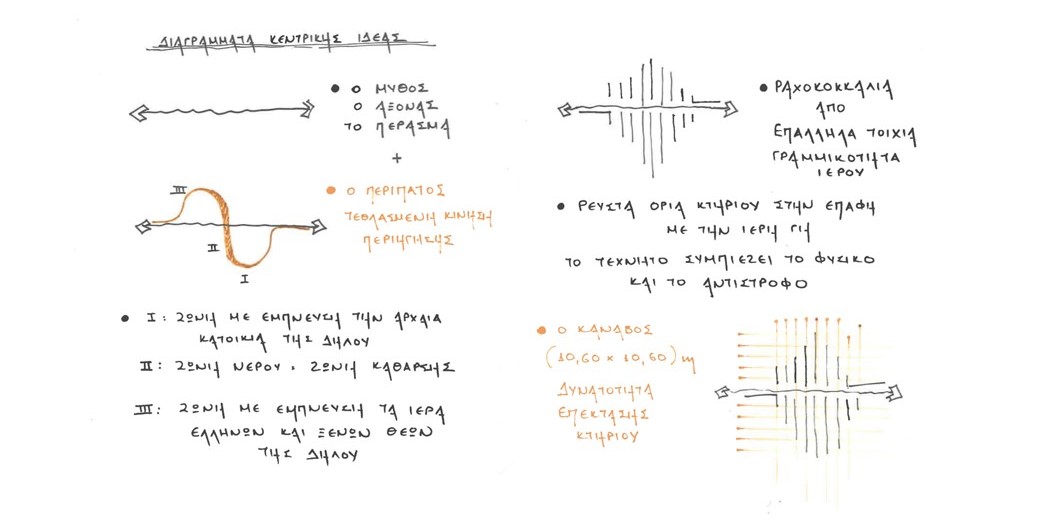 ΔΙΑΓΡΑΜΜΑΤΑ ΚΕΝΤΡΙΚΗΣ ΙΔΕΑΣ
• Ο ΜΥΘΟΣ
Ο ΑΞΟΝΑΣ
ΤΟ ΠΕΡΑΣΜΑ
+
• Ο ΠΕΡΙΠΑΤΟΣ
ΤΕΘΛΑΣΜΕΝΗ ΚΙΝΗΣΗ
ΠΕΡΙΗΓΗΣΗΣ
III
II
I
• I: ΖΩΝΗ ΜΕ ΕΜΠΝΕΥΣΗ ΤΗΝ ΑΡΧΑΙΑ
ΚΑΤΟΙΚΙΑ ΤΗΣ ΔΗΛΟΥ
II: ΖΩΝΗ ΝΕΡΟΥ. ΖΩΝΗ ΚΑΘΑΡΣΗΣ
III: ΖΩΝΗ ΜΕ ΕΜΠΝΕΥΣΗ ΤΑ ΙΕΡΑ
ΕΛΛΗΝΩΝ ΚΑΙ ΞΕΝΩΝ ΘΕΩΝ
ΤΗΣ ΔΗΛΟΥ
• ΡΑΧΟΚΟΚΚΑΛΙΑ
ΑΠΟ
ΕΠΑΛΛΗΛΑ ΤΟΙΧΙΑ
ΓΡΑΜΜΙΚΟΤΗΤΑ
ΙΕΡΟΥ
• ΡΕΥΣΤΑ ΟΡΙΑ ΚΤΗΡΙΟΥ ΣΤΗΝ ΕΠΑΦΗ
ΜΕ ΤΗΝ ΙΕΡΗ ΓΗ
ΤΟ ΤΕΧΝΗΤΟ ΣΥΜΠΙΕΖΕΙ ΤΟ ΦΥΣΙΚΟ
ΚΑΙ ΤΟ ΑΝΤΙΣΤΡΟΦΟ
• Ο ΚΑΝΑΒΟΣ
(10,60 × 10,60) m
ΔΥΝΑΤΟΤΗΤΑ
ΕΠΕΚΤΑΣΗΣ
ΚΤΗΡΙΟΥ